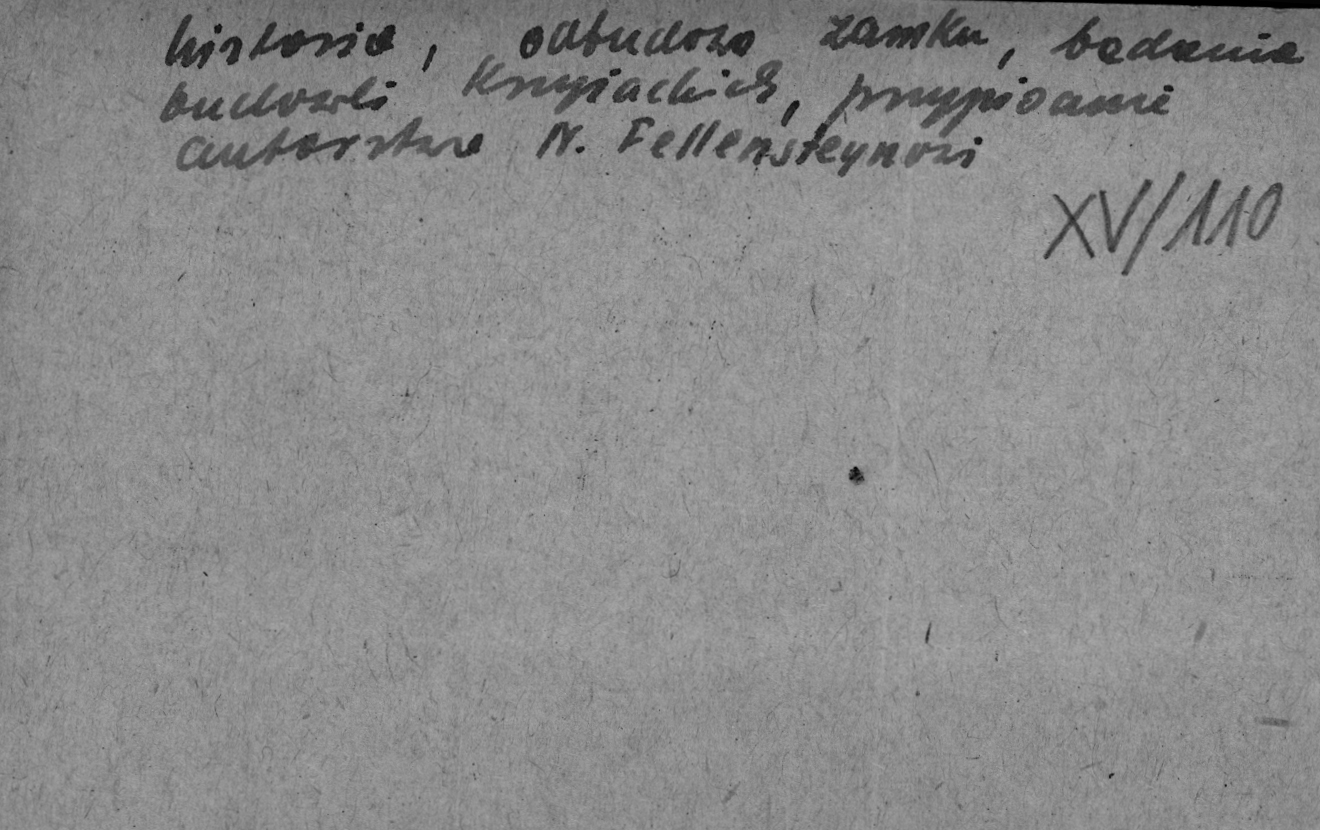 historia, odbudowa zamku, badania
budowli Krzyżackich, przypisanie
autorstwa N. Fellensteynowi
XV/110